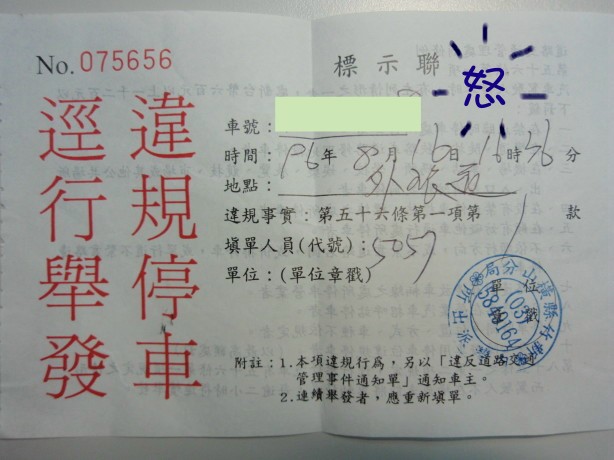 No. 075656
違規停車
逕行舉發
標示聯
怒
車號：
時間：96年8月16日16時36分
地點：
違規事實：第五十六條第一項第1款
填單人員(代號)：5057
單位：(單位章戳)
附註：1.本項違規行為，另以「違反道路交通
管理事件通知單」通知車主。
2.連續舉發者，應重新填單。